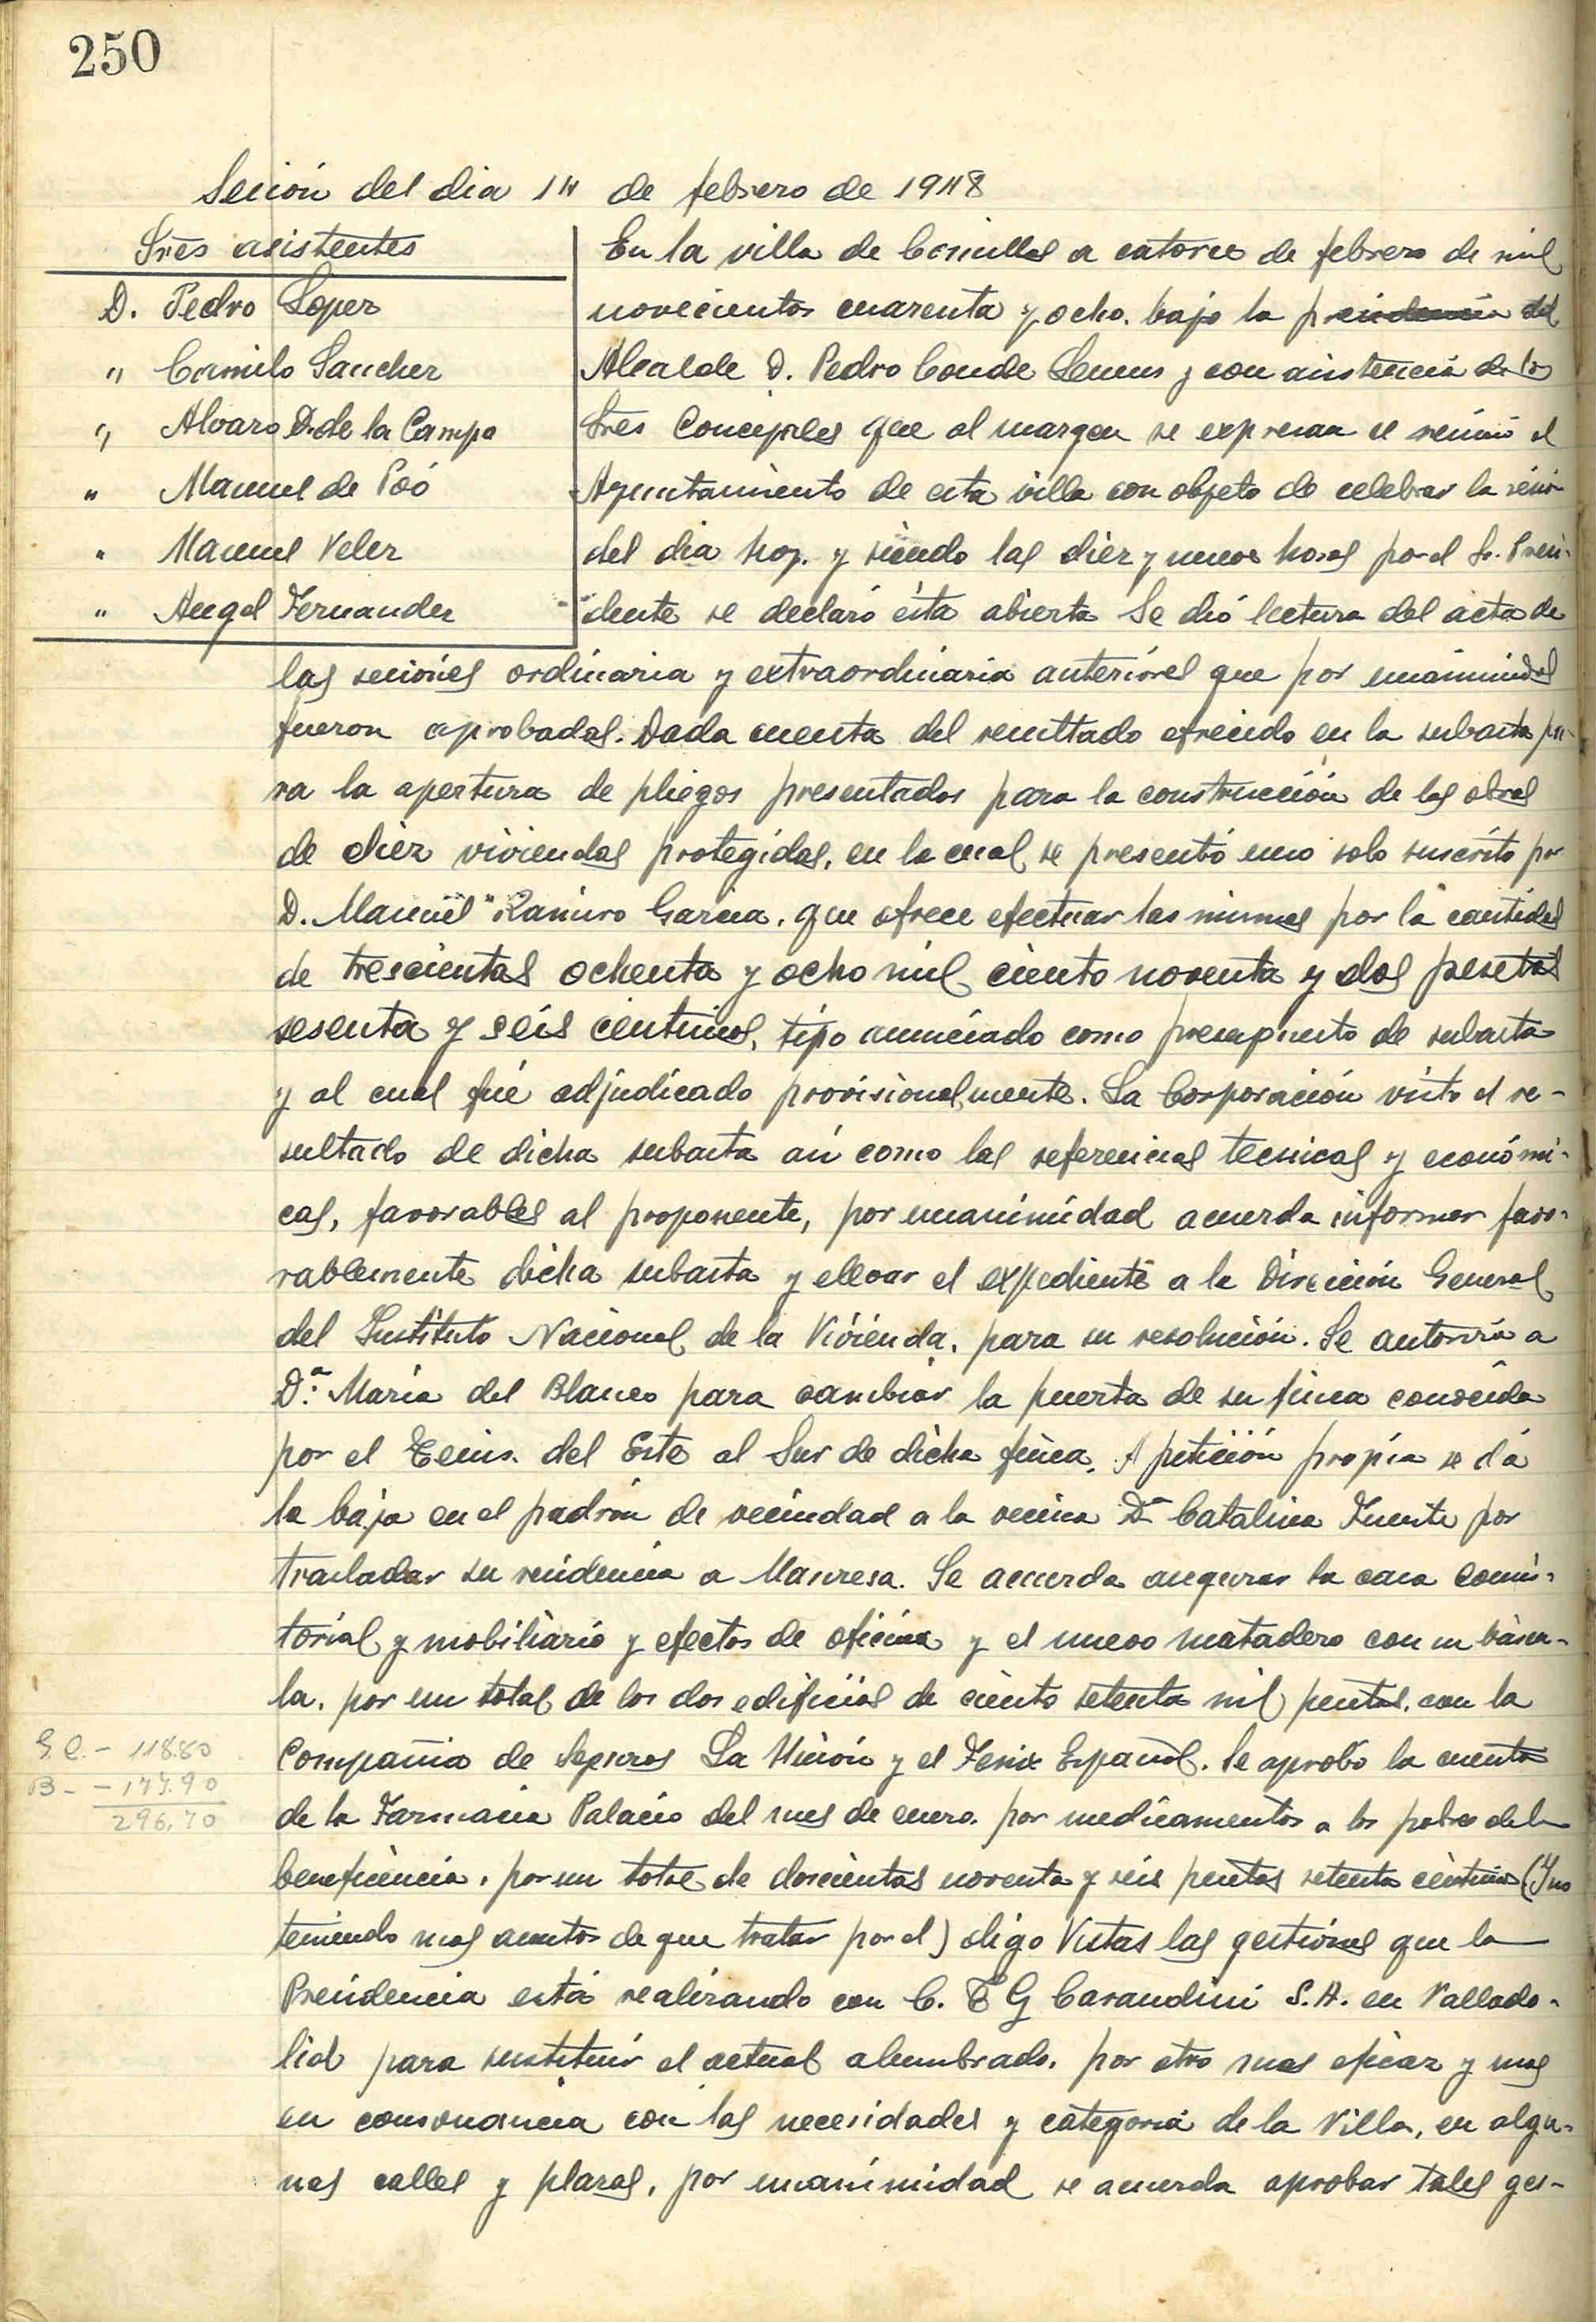 250
Sesión del dia 14 de febrero de 1948
Sres asistentes
D. Pedro Lopez
" Camilo Sanchez
" Alvaro D. de la Campa
" Manuel de Poó
" Manuel Velez
" Angel Fernandez
En la villa de Comillas a catorce de febrero de mil
novecientos cuarenta y ocho. bajo la presidencia del
Alcalde D. Pedro Conde y con asistencia de los
Sres Concejales que al margen se expresan se reunió el
Ayuntamiento de esta villa con objeto de celebrar la sesión
del dia hoy. y siendo las diez y nueve horas por el Sr. Presi-
dente se declaró ésta abierta Se dió lectura del acta de
las sesiones ordinaria y extraordinaria anteriores que por unanimidad
fueron aprobadas. Dada cuenta del resultado ofrecido en la subasta pa-
ra la apertura de pliegos presentados para la construcción de las obras
de diez viviendas protegidas, en la cual se presentó uno solo suscrito por
D. Manuel Ramiro Garcia, que ofrece efectuar las mismas por la cantidad
de trescientas ochenta y ocho mil ciento noventa y dos pesetas
sesenta y seis centimos, tipo anunciado como presupuesto de subasta
y al cual fué adjudicado provisionalmente. La Corporación visto el re-
sultado de dicha subasta asi como las referencias tecnicas y económi-
cas, favorables al proponente, por unanimidad acuerda informar favo-
rablemente dicha subasta y elevar el expediente a la Dirección General
del Instituto Nacional de la Vivienda, para su resolución. Se autoriza a
Dª. Maria del Blanco para cambiar la puerta de su finca conocida
por el Tenis. del Este al Sur de dicha finca. A petición propia se dá
la baja en el padrón de vecindad a la vecina Dª Catalina Fuente por
trasladar su residencia a Manresa. Se acuerda asegurar la casa Consis-
torial y mobiliario y efectos de oficina y el nuevo matadero con su báscu-
la, por un total de los dos edificios de ciento setenta mil pesetas, con la
Compañia de Seguros La Unión y el Fenix Español. Se aprobó la cuenta
de la Farmacia Palacio del mes de enero, por medicamentos a los pobres de la
beneficencia, por un total de doscientas noventa y seis pesetas setenta céntimos (Y no
teniendo mas asuntos de que tratar por el) digo Vistas las gestiones que la
Presidencia está realizando con C. E G Carandini S.A. en Vallado-
lid para sustituir el actual alumbrado, por otro mas eficaz y mas
en consonancia con las necesidades y categoria de la Villa, en algu-
nas calles y plazas, por unanimidad se acuerda aprobar tales ges-
118.80
B - - 177.90
296,70